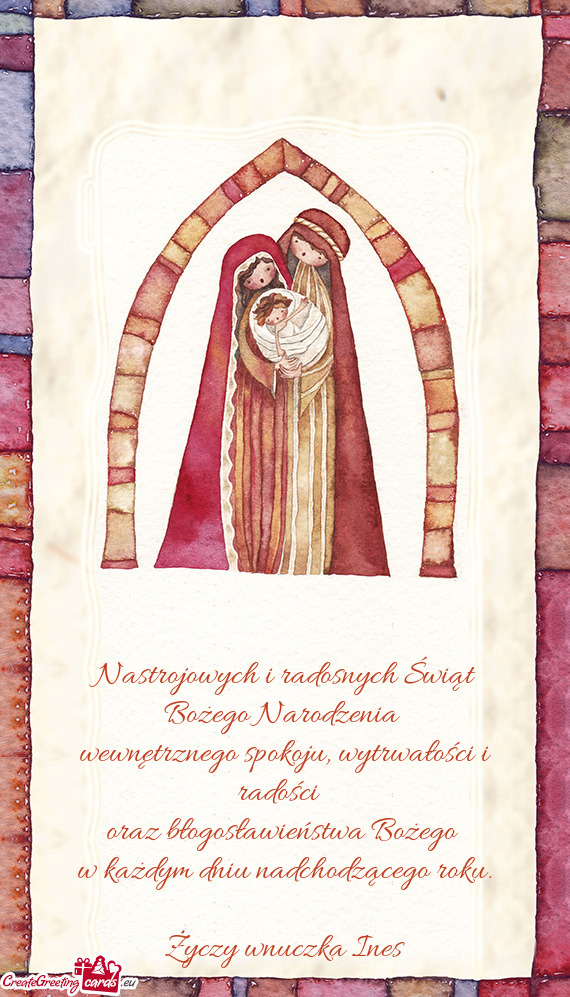 Nastrojowych i radosnych Świąt
Bożego Narodzenia
wewnętrznego spokoju, wytrwałości i
radości
oraz błogosławieństwa Bożego
w każdym dniu nadchodzącego roku.
Życzy wnuczka Ines
CreateGreeting cards .eu